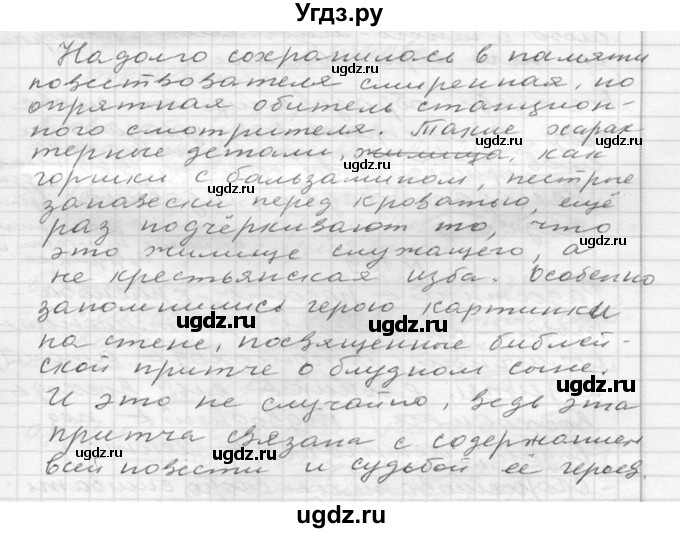 Угдз.ру
Надолго сохранилось в памяти
повествователя смиренная, но
опрятная обитель станцион-
ного смотрителя. Такие харак-
терные детали, жилища, как
горшки с бальзамином, пестрые
занавески перед кроватью, ещё
раз подчёркивают то, что
это жилище служащего, а
не крестьянская изба. Особенно
запомнились герою картинки
на стене, посвященные библей-
ской притче о блудном сыне.
И это не случайно, ведь эта
притча связана с содержанием
всей повести и судьбой её героев.
ugdz.ru
ugdz.ru
ugdz.ru
ugdz.ru
ugdz.ru
ugdz.ru
ugdz.ru
ugdz.ru
ugdz.ru
ugdz.ru
ugdz.ru
©ugdz.ru
ugdz.ru
ugdz.ru
ugdz.ru
ugdz.ru
ugdz.ru